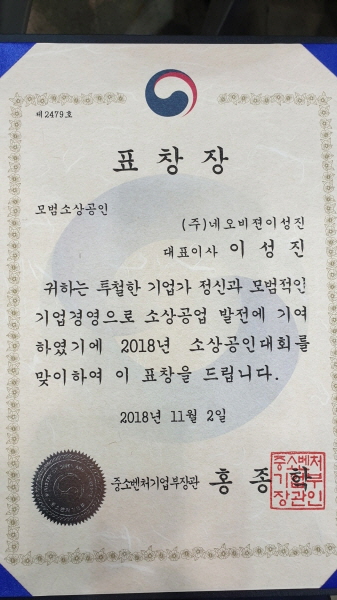 제2479호
표창장
모범소상공인
(주)네오비젼이성진
대표이사 이성진
귀하는 투철한 기업가 정신과 모범적인
기업경영으로 소상공업 발전에 기여
하였기에 2018년 소상공인대회를
맞이하여 이 표창을 드립니다.
2018년 11월 2일
중소벤처기업부장관 홍종학
중소벤처
기업부
장관인